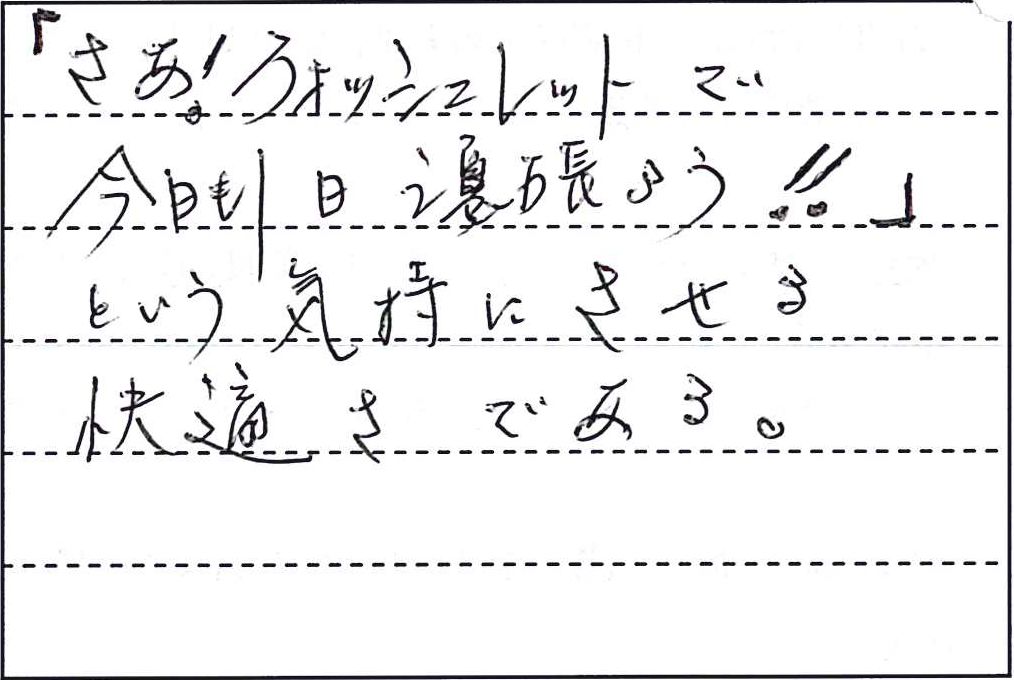 「さあ!ウォッシュレットで
今日も1日頑張ろう!!」
という気持にさせる
快適さである。